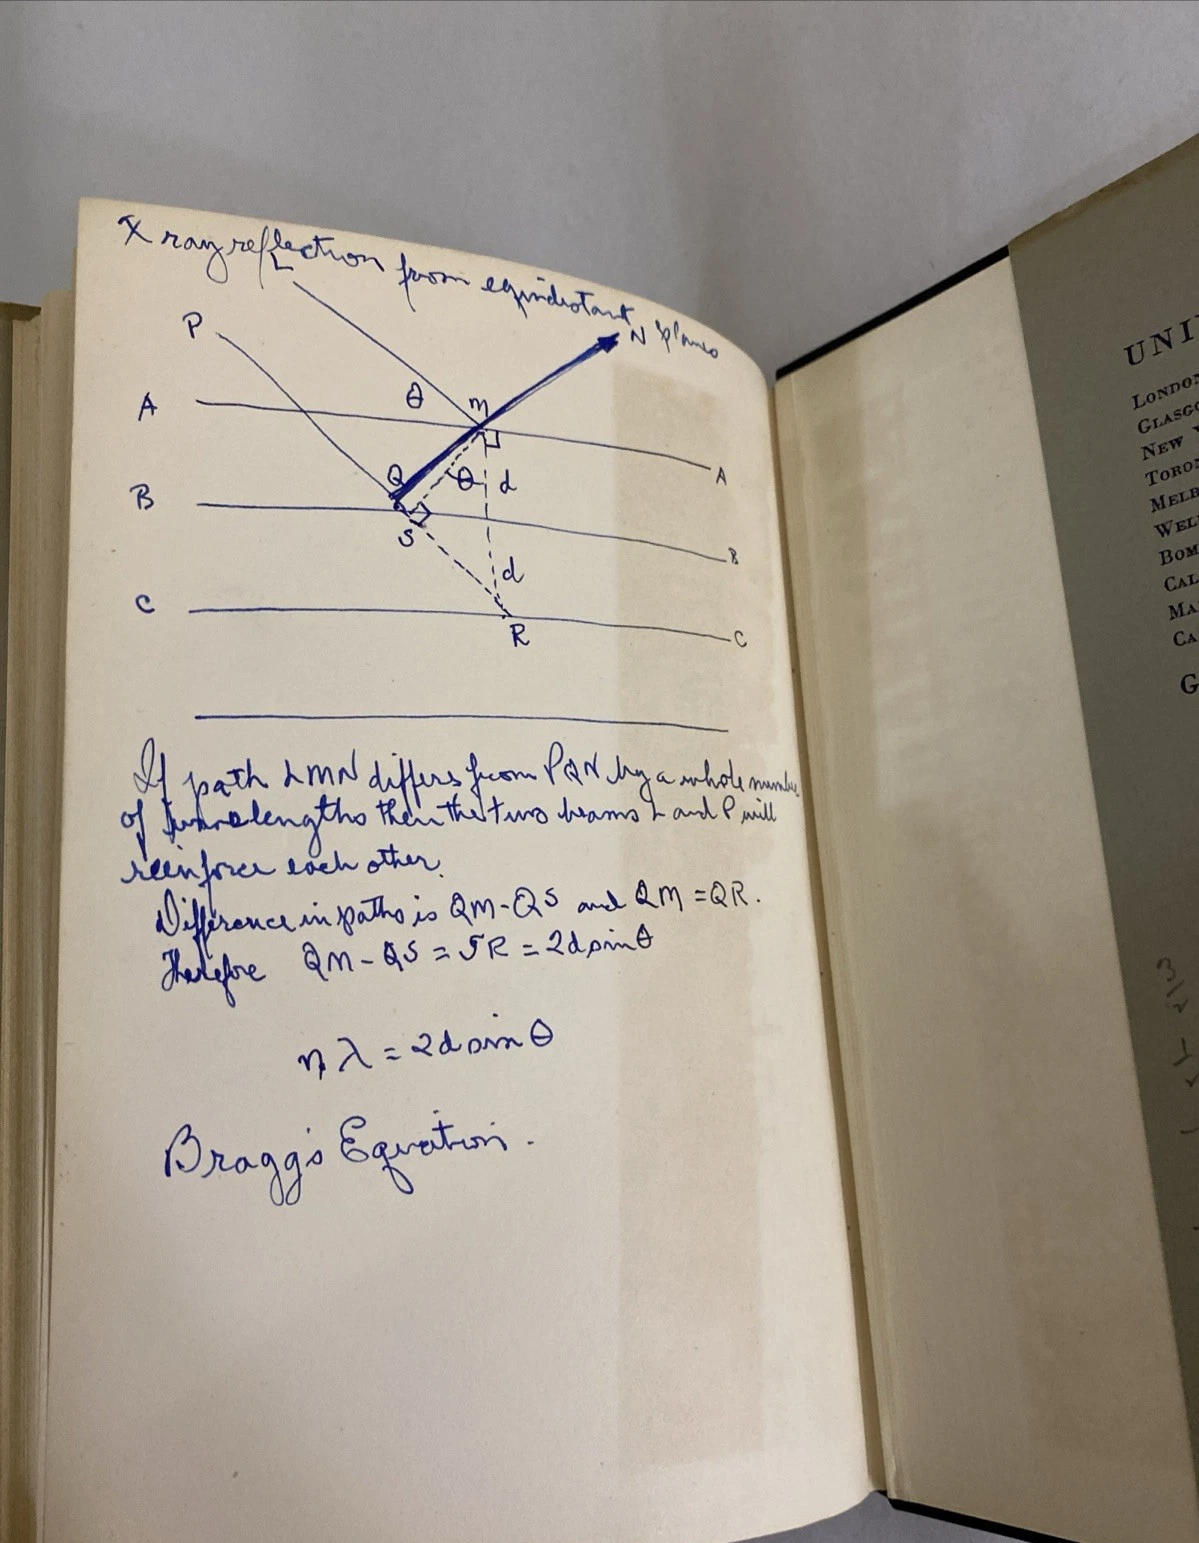 X ray reflection from equidistant planes
L
P
N
A
θ
M
A
Q
θ
d
B
S
B
d
C
R
C
If path LMN differs from PQN by a whole number
of wavelengths then the two beams L and P will
reinforce each other.
Difference in paths is QM-QS and QM = QR.
Therefore QM - QS = SR = 2d sin θ
nλ = 2d sin θ
Bragg's Equation.
UNI
LONDON
GLASGO
NEW Y
TORON
MELB
WEL
BOM
CAL
MA
CA
G